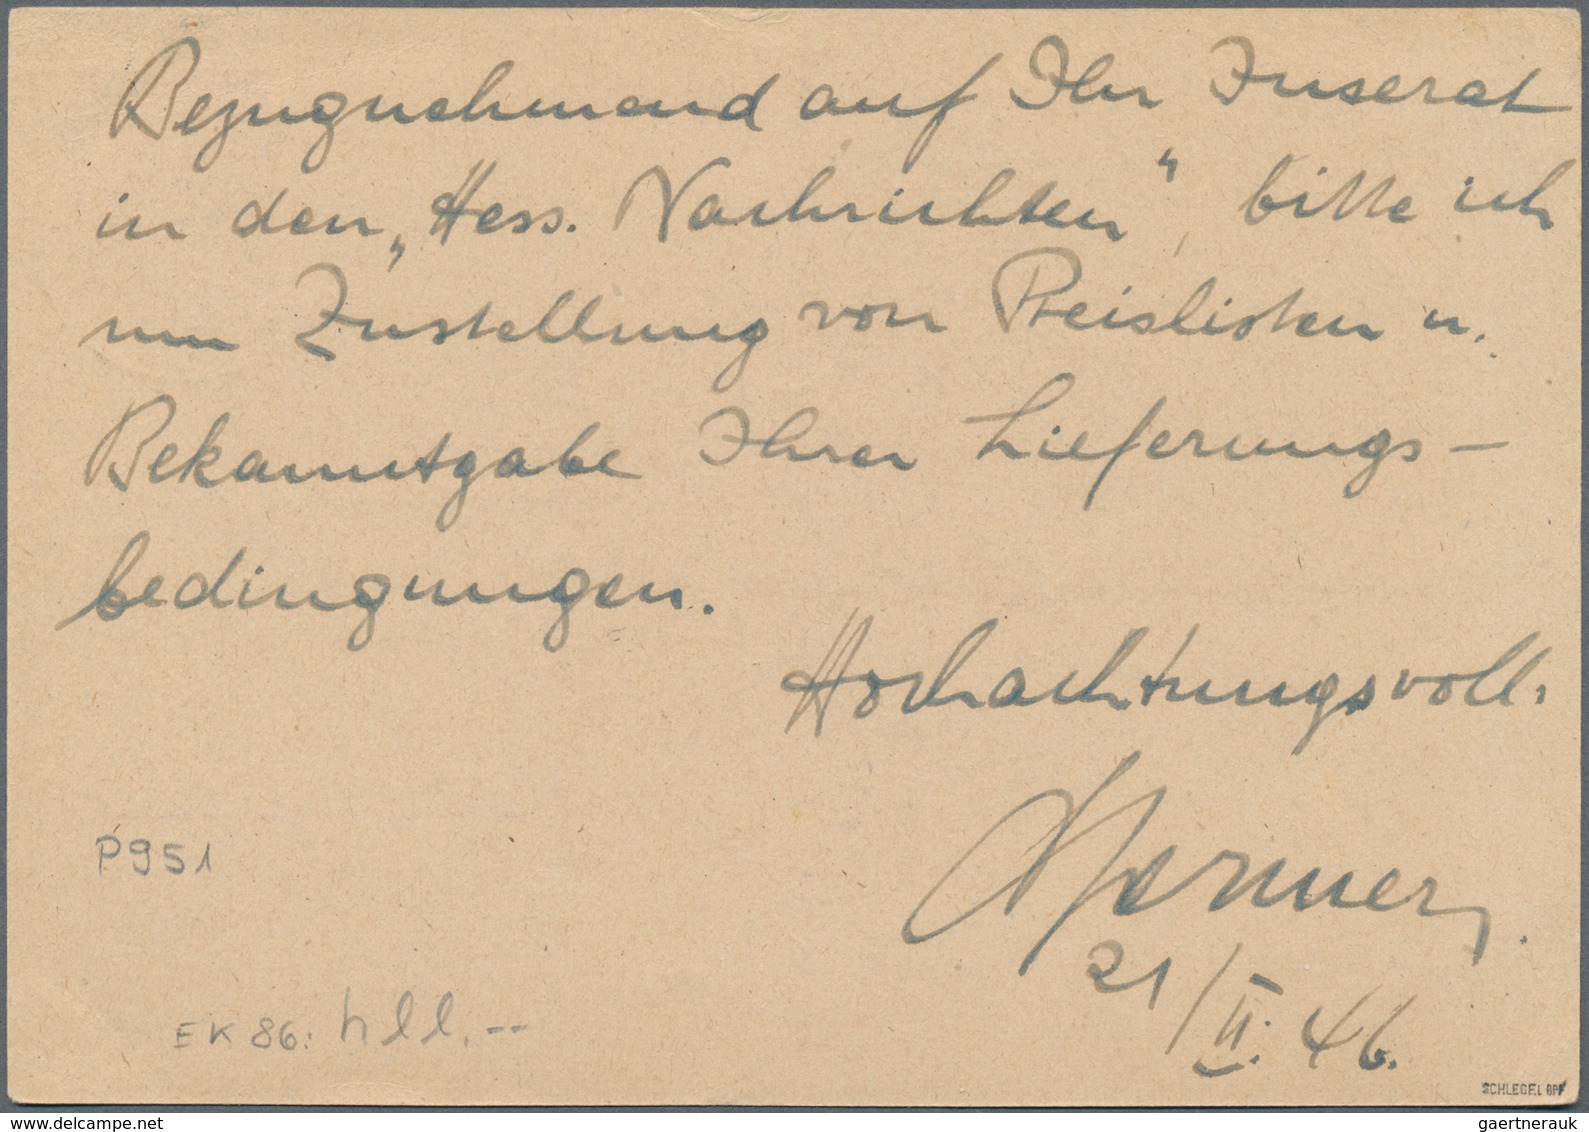 Bezugnehmend auf Ihr Inserat
in den „Hess. Nachrichten“, bitte ich
um Zustellung von Preislisten u.
Bekanntgabe Ihrer Lieferungs-
bedingungen.
Hochachtungsvoll.
21/II. 46.
P951
EK 86: hll.--
SCHLEGEL BPP
delcampe.net
gaertnerauk